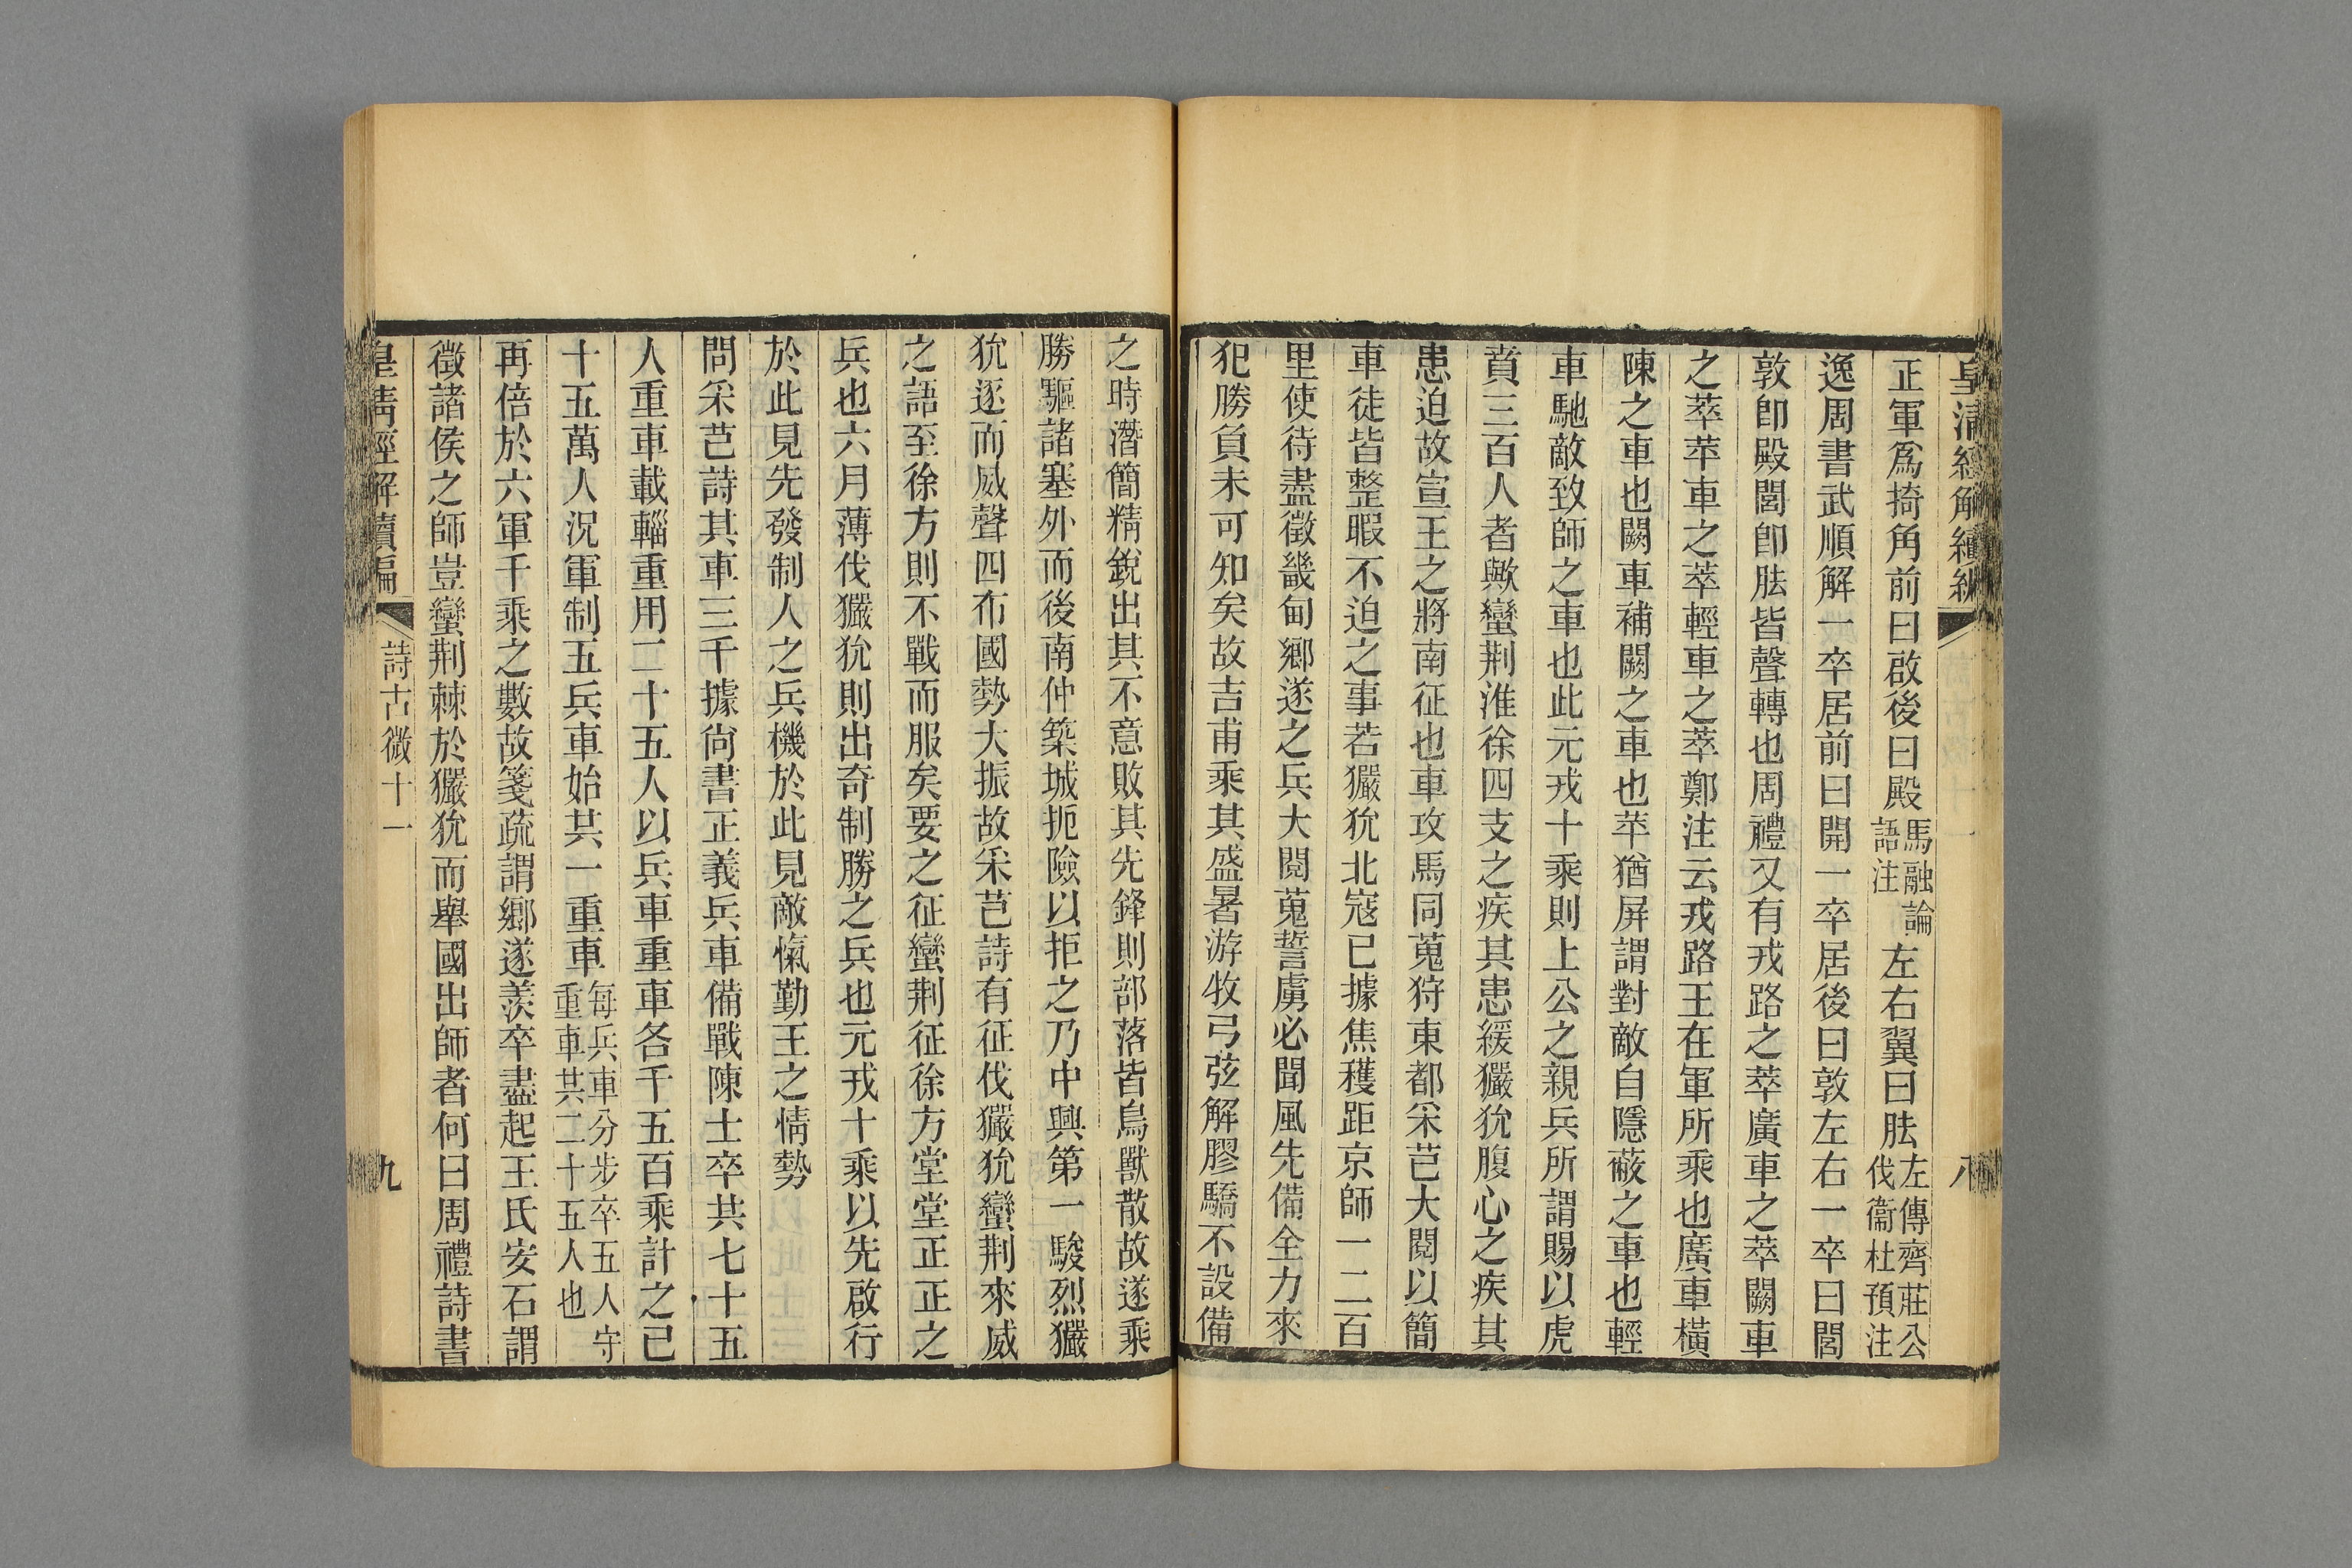 皇清經解續編
八
正軍爲掎角前曰啟後曰殿馬融論語注左右翼曰胠左傳齊莊公伐衞杜預注
逸周書武順解一卒居前曰開一卒居後曰敦左右一卒曰閭
敦卽殿閭卽胠皆聲轉也周禮又有戎路之萃廣車之萃闕車
之萃苹車之萃輕車之萃鄭注云戎路王在軍所乘也廣車橫
陳之車也闕車補闕之車也苹猶屏謂對敵自隱蔽之車也輕
車馳敵致師之車也此元戎十乘則上公之親兵所謂賜以虎
賁三百人者歟蠻荆淮徐四支之疾其患緩玁狁腹心之疾其
患迫故宣王之將南征也車攻馬同蒐狩東都采芑大閱以簡
車徒皆整暇不迫之事若玁狁北寇已據焦穫距京師一二百
里使待盡徵畿甸鄉遂之兵大閱蒐誓虜必聞風先備全力來
犯勝負未可知矣故吉甫乘其盛暑游牧弓弦解膠驕不設備
之時潛簡精銳出其不意敗其先鋒則部落皆鳥獸散故遂乘
勝驅諸塞外而後南仲築城扼險以拒之乃中興第一駿烈玁
狁逐而威聲四布國勢大振故采芑詩有征伐玁狁蠻荆來威
之語至徐方則不戰而服矣要之征蠻荆征徐方堂堂正正之
兵也六月薄伐玁狁則出奇制勝之兵也元戎十乘以先啟行
於此見先發制人之兵機於此見敵愾勤王之情勢
問采芑詩其車三千據尙書正義兵車備戰陳士卒共七十五
人重車載輜重用二十五人以兵車重車各千五百乘計之已
十五萬人況軍制五兵車始共一重車每兵車分步卒五人守重車共二十五人也
再倍於六軍千乘之數故箋疏謂鄉遂羨卒盡起王氏安石謂
徵諸侯之師豈蠻荆棘於玁狁而舉國出師者何曰周禮詩書
皇清經解續編
詩古微十一
九